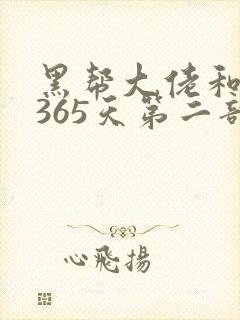 黑帮大佬和
365天第二部
心飛揚